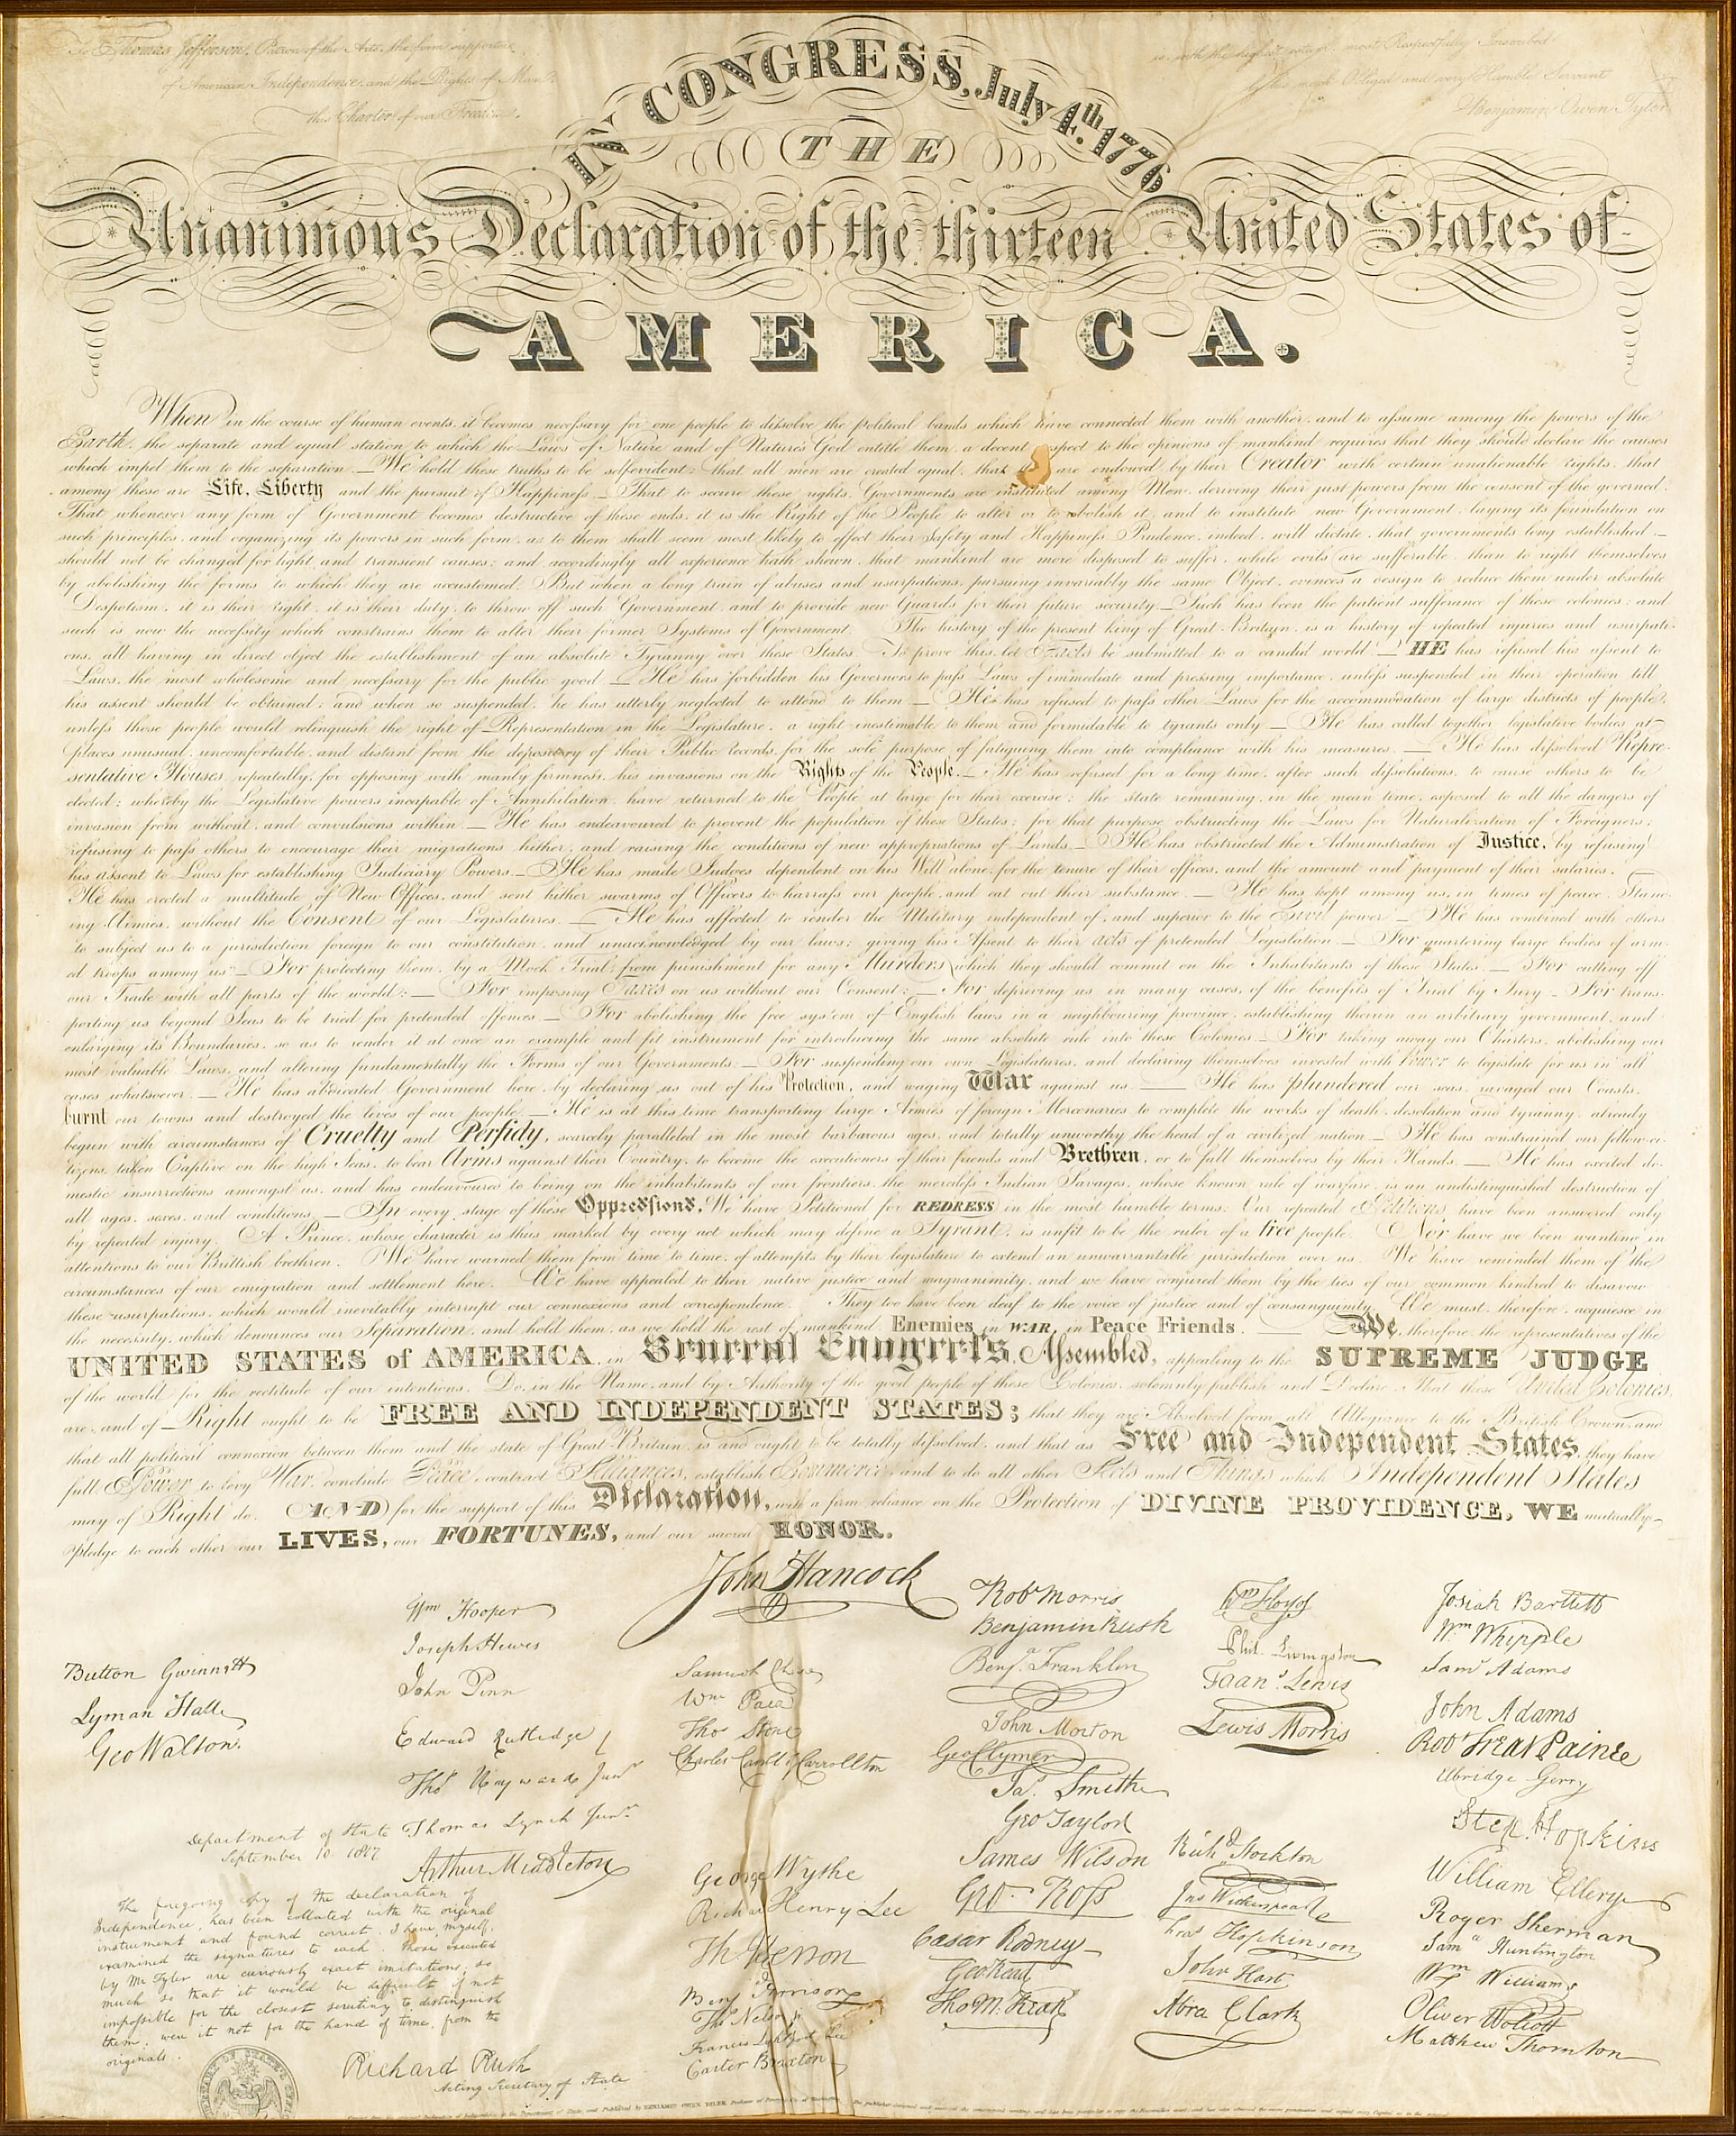 To Thomas Jefferson, Patron of the Arts, the firm supporter
of American Independence, and the Rights of Man
this Charter of our Freedom,
is, with the highest esteem, most Respectfully Inscribed
by his much Obliged and very Humble Servant
Benjamin Owen Tyler
IN CONGRESS, July 4th. 1776
THE
Unanimous Declaration of the thirteen United States of
AMERICA.
When in the course of human events, it becomes necessary for one people to dissolve the political bands which have connected them with another, and to assume among the powers of the
Earth, the separate and equal station to which the Laws of Nature and of Nature's God entitle them, a decent spect to the opinions of mankind requires that they should declare the causes
which impel them to the separation.—We hold these truths to be self-evident; that all men are created equal, that are endowed by their Creator with certain unalienable rights, that
among these are Life, Liberty and the pursuit of Happiness—That to secure these rights, Governments are instituted among Men, deriving their just powers from the consent of the governed.
That whenever any form of Government becomes destructive of these ends, it is the Right of the People to alter or to abolish it, and to institute new Government, laying its foundation on
such principles, and organizing its powers in such form, as to them shall seem most likely to effect their Safety and Happiness Prudence, indeed, will dictate, that governments long established—
should not be changed for light and transient causes; and accordingly all experience hath shewn, that mankind are more disposed to suffer, while evils are sufferable, than to right themselves
by abolishing the forms to which they are accustomed. But when a long train of abuses and usurpations, pursuing invariably the same Object, evinces a design to reduce them under absolute
Despotism, it is their right, it is their duty, to throw off such Government, and to provide new Guards for their future security.—Such has been the patient sufferance of these colonies; and
such is now the necessity which constrains them to alter their former Systems of Government. The history of the present king of Great-Britain, is a history of repeated injuries and usurpati-
ons, all having in direct object the establishment of an absolute Tyranny over these States. To prove this, let Facts be submitted to a candid world.—HE has refused his assent to
Laws, the most wholesome and necessary for the public good.—He has forbidden his Governors to pass Laws of immediate and pressing importance, unless suspended in their operation till
his assent should be obtained; and when so suspended, he has utterly neglected to attend to them.—He has refused to pass other Laws for the accommodation of large districts of people,
unless those people would relinquish the right of Representation in the Legislature, a right inestimable to them and formidable to tyrants only.—He has called together legislative bodies at
places unusual, uncomfortable, and distant from the depository of their Public Records, for the sole purpose of fatiguing them into compliance with his measures.—He has dissolved Repre-
sentative Houses, repeatedly, for opposing with manly firmness, his invasions on the Rights of the People.—He has refused for a long time, after such dissolutions, to cause others to be
elected; whereby the Legislative powers incapable of Annihilation, have returned to the People at large for their exercise; the state remaining, in the mean time, exposed to all the dangers of
invasion from without, and convulsions within.—He has endeavoured to prevent the population of these States; for that purpose obstructing the Laws for Naturalization of Foreigners;
refusing to pass others to encourage their migrations hither, and raising the conditions of new appropriations of Lands.—He has obstructed the Administration of Justice, by refusing
his assent to Laws for establishing Judiciary Powers.—He has made Judges dependent on his Will alone, for the tenure of their offices, and the amount and payment of their salaries.
He has erected a multitude of New Offices, and sent hither swarms of Officers to harrass our people, and eat out their substance.—He has kept among us, in times of peace, Stand-
ing Armies, without the Consent of our Legislatures.—He has affected to render the Military independent of, and superior to the Civil power.—He has combined with others
to subject us to a jurisdiction foreign to our constitution, and unacknowledged by our laws; giving his Assent to their acts of pretended Legislation.—For quartering large bodies of arm-
ed troops among us—For protecting them, by a Mock Trial, from punishment for any Murders which they should commit on the Inhabitants of these States.—For cutting off
our Trade with all parts of the world:—For imposing Taxes on us without our Consent:—For depriving us in many cases, of the benefits of Trial by Jury—For trans-
porting us beyond Seas to be tried for pretended offences—For abolishing the free system of English laws in a neighbouring province, establishing therein an arbitrary government, and
enlarging its Boundaries, so as to render it at once an example and fit instrument for introducing the same absolute rule into these Colonies.—For taking away our Charters, abolishing our
most valuable Laws, and altering fundamentally the Forms of our Governments:—For suspending our own Legislatures, and declaring themselves invested with Power to legislate for us in all
cases whatsoever.—He has abdicated Government here, by declaring us out of his Protection, and waging War against us.—He has plundered our seas, ravaged our Coasts,
burnt our towns and destroyed the lives of our people.—He is at this time transporting large Armies of foreign Mercenaries to complete the works of death, desolation and tyranny, already
begun with circumstances of Cruelty and Perfidy, scarcely paralleled in the most barbarous ages, and totally unworthy the head of a civilized nation.—He has constrained our fellow-ci-
tizens, taken Captive on the high Seas, to bear Arms against their Country, to become the executioners of their friends and Brethren, or to fall themselves by their Hands.—He has excited do-
mestic insurrections amongst us, and has endeavoured to bring on the inhabitants of our frontiers, the merciless Indian Savages, whose known rule of warfare, is an undistinguished destruction of
all ages, sexes, and conditions.—In every stage of these Oppressions, We have Petitioned for REDRESS in the most humble terms: Our repeated Petitions, have been answered only
by repeated injury. A Prince, whose character is thus marked by every act which may define a Tyrant, is unfit to be the ruler of a free people. Nor have we been wanting in
attentions to our Brittish brethren. We have warned them from time to time, of attempts by their legislature to extend an unwarrantable jurisdiction over us. We have reminded them of the
circumstances of our emigration and settlement here. We have appealed to their native justice and magnanimity, and we have conjured them by the ties of our common kindred to disavow
these usurpations, which would inevitably interrupt our connexions and correspondence. They too have been deaf to the voice of justice and of consanguinity. We must, therefore, acquiesce in
the necessity, which denounces our Separation, and hold them, as we hold the rest of mankind Enemies in WAR, in Peace Friends. We, therefore, the representatives of the
UNITED STATES of AMERICA, in General Congress, Assembled, appealing to the SUPREME JUDGE
of the world for the rectitude of our intentions, Do, in the Name, and by Authority of the good people of these Colonies, solemnly publish and Declare, That these United Colonies,
are, and of Right ought to be FREE AND INDEPENDENT STATES; that they are Absolved from all Allegiance to the British Crown, and
that all political connexion between them and the state of Great-Britain, is and ought to be totally dissolved; and that as Free and Independent States, they have
full Power to levy War, conclude Peace, contract Alliances, establish Commerce, and to do all other Acts and Things which Independent States
may of Right do. AND for the support of this Declaration, with a firm reliance on the Protection of DIVINE PROVIDENCE, WE mutually
pledge to each other our LIVES, our FORTUNES, and our sacred HONOR.
John Hancock
Button Gwinnett
Lyman Hall
Geo Walton.
Wm Hooper
Joseph Hewes
John Penn
Edward Rutledge /
Thos Heyward Junr
Thomas Lynch Junr
Arthur Middleton
Samuel Chase
Wm Paca
Thos Stone
Charles Carroll of Carrollton
George Wythe
Richard Henry Lee
Th Jefferson
Benj Harrison
Thos Nelson jr
Francis Lightfoot Lee
Carter Braxton
Robt Morris
Benjamin Rush
Benja. Franklin
John Morton
Geo Clymer
Jas. Smith
Geo Taylor
James Wilson
Geo. Ross
Caesar Rodney
Geo Read
Tho M:Kean
Wm Floyd
Phil. Livingston
Frans. Lewis
Lewis Morris
Richd Stockton
Jno Witherspoon
Fras Hopkinson
John Hart
Abra Clark
Josiah Bartlett
Wm Whipple
Saml Adams
John Adams
Robt Treat Paine
Elbridge Gerry
Step. Hopkins
William Ellery
Roger Sherman
Saml Huntington
Wm Williams
Oliver Wolcott
Matthew Thornton
Department of State
September 10. 1817.
The foregoing copy of the declaration of
Independence, has been collated with the original
instrument and found correct. I have myself,
examined the signatures to each. Those executed
by Mr Tyler are curiously exact imitations; so
much so that it would be difficult, if not
impossible for the closest scrutiny to distinguish
them, were it not for the hand of time, from the
originals.
Richard Rush
Acting Secretary of State